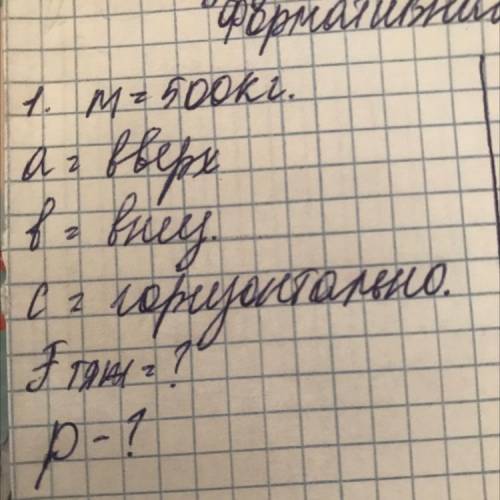 Формативн
1. m = 500кг.
a = вверх
в = вниз.
c = горизонтально.
Fтяж = ?
p - ?